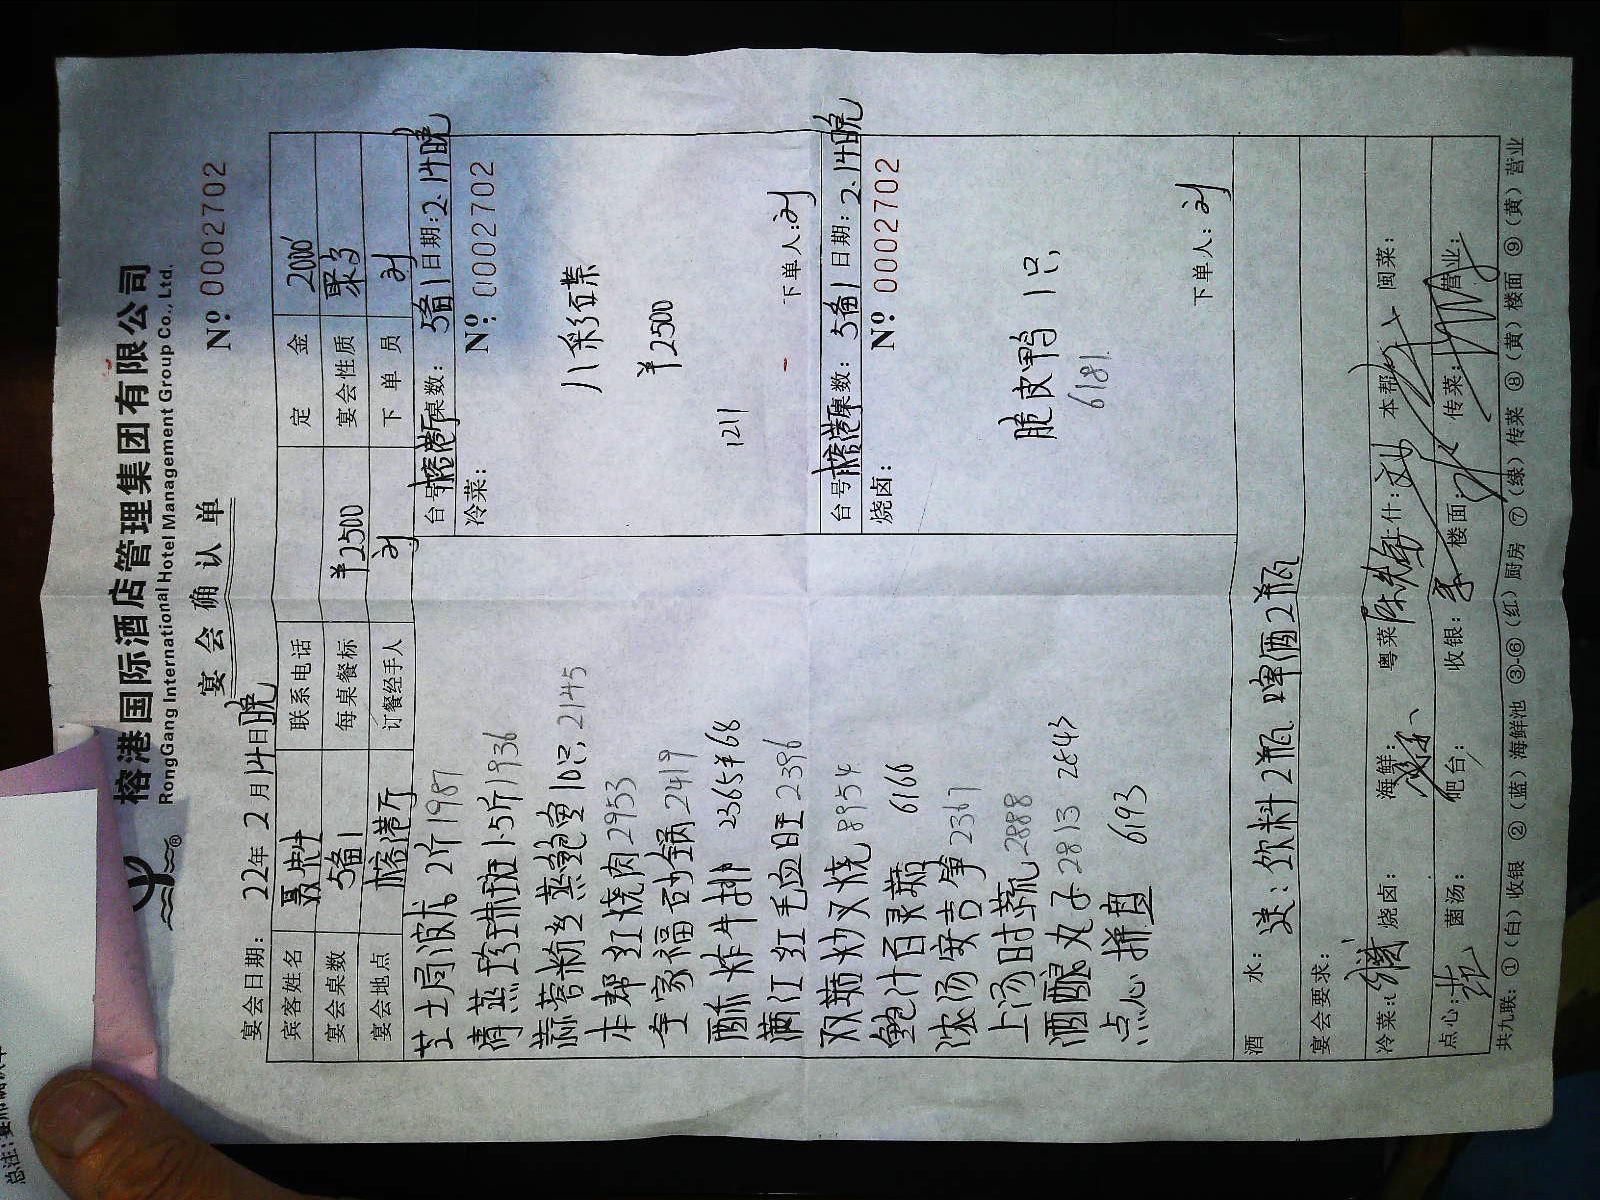 榕港国际酒店管理集团有限公司
RongGang International Hotel Management Group Co., Ltd.
宴会确认单
Nº 0002702
宴会日期: 22年 2月14日晚
宾客姓名 联系电话 定金 2000
宴会桌数 5备1 每桌餐标 ¥2500 宴会性质 聚
宴会地点 榕港厅 订餐经手人 刘 下单员 刘
芝士局波龙 2斤 1987
清蒸珍珠斑 1.5斤 1936
蒜蓉粉丝蒸鲍鱼10只 2145
本帮红烧肉 2953
全家福砂锅 2419
酥炸牛排 2365 ¥68
满江红毛血旺 2396
双菇炒叉烧 8954
鲍汁百灵菇 6166
浓汤安吉笋 2361
上汤时蔬 2888
酒酿丸子 2813 2843
点心拼盘 6193
台号: 榕港厅 桌数: 5备1 日期: 2.14晚
冷菜: Nº: 0002702
八彩碟
¥2500
1211
下单人: 刘
台号: 榕港厅 桌数: 5备1 日期: 2.14晚
烧卤: Nº 0002702
脆皮鸭 1只
6181
下单人: 刘
酒水: 送: 饮料2瓶 啤酒2瓶
宴会要求:
冷菜: 烧卤: 海鲜: 粤菜 上什: 本帮 闽菜:
点心: 菌汤: 吧台: 收银: 楼面: 传菜: 营业:
共九联: ①(白)收银 ②(蓝)海鲜池 ③-⑥(红)厨房 ⑦(绿)传菜 ⑧(黄)楼面 ⑨(黄)营业
总注: